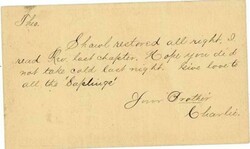 Shawl restored all right, I
read Rev. last chapter, Hope you did
not take cold last night. Give love to
all the "Saplings"
Your Brother
Charlie